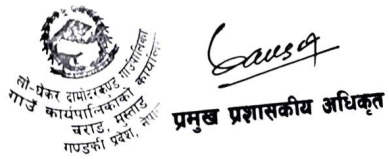 लो-घेकर दामोदरकुण्ड गाउँपालिका
गाउँ कार्यपालिकाको कार्यालय
चराङ, मुस्ताङ
गण्डकी प्रदेश, नेपाल
प्रमुख प्रशासकीय अधिकृत